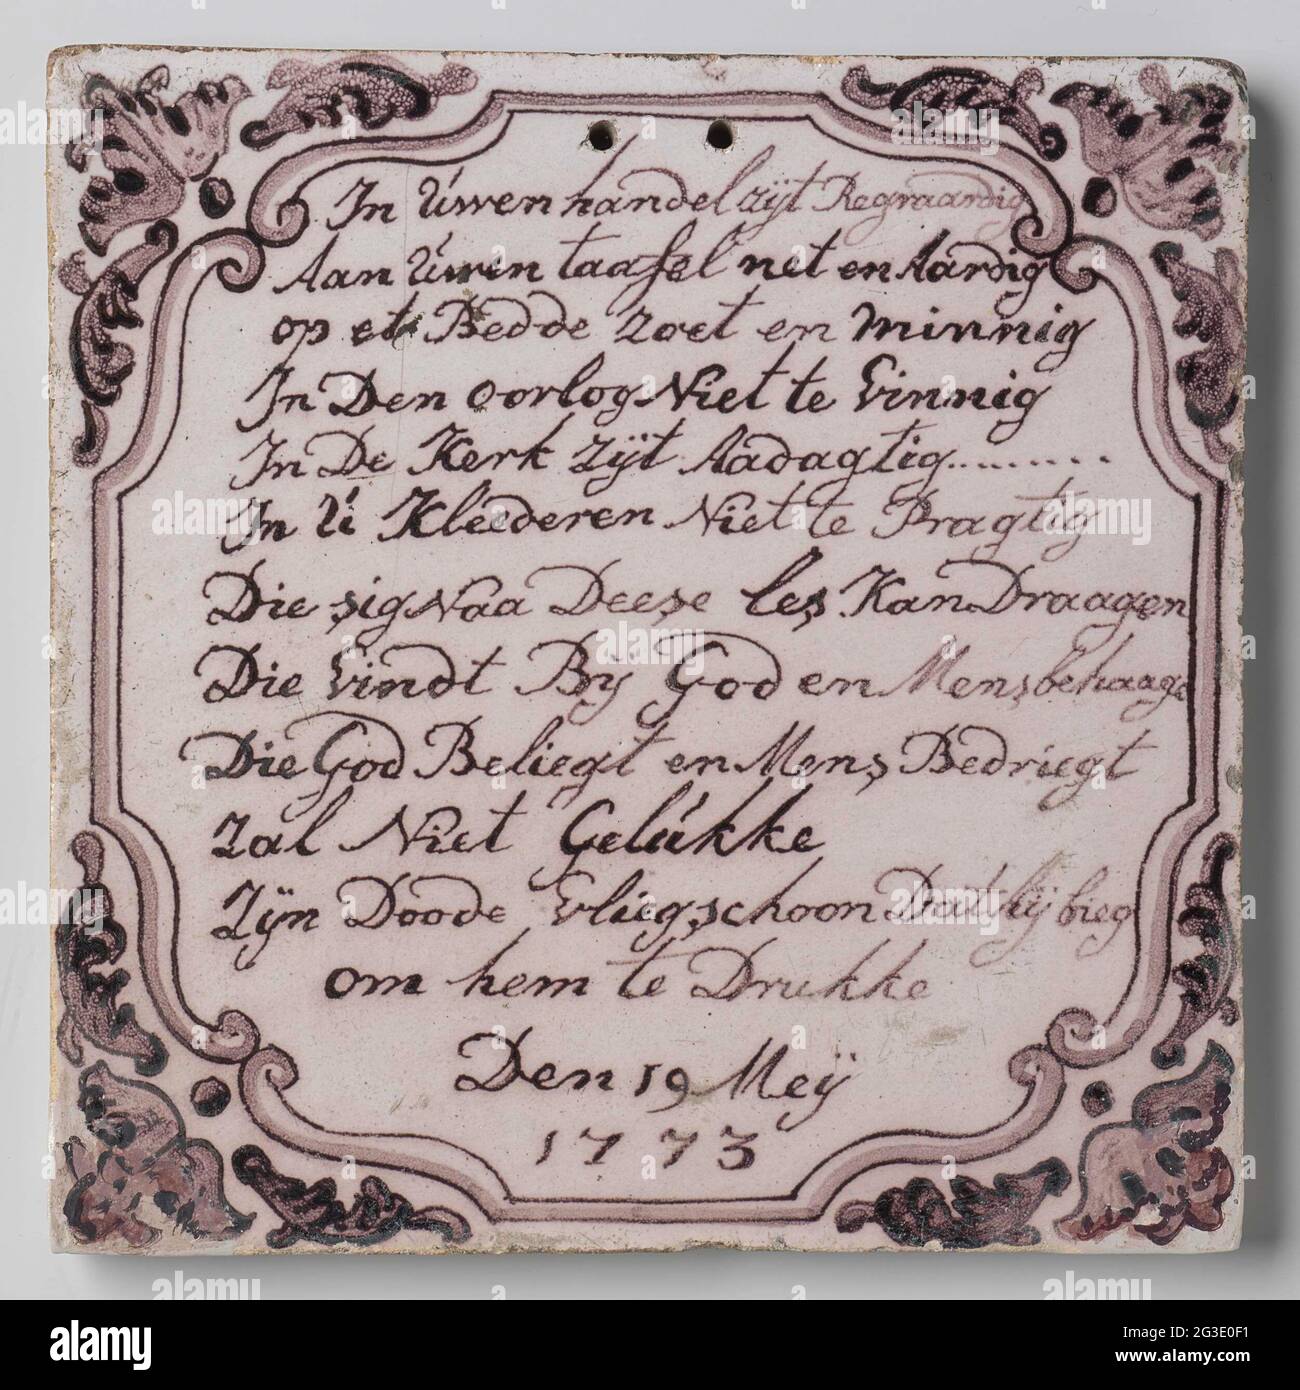 In Úwen handel zijt Regvaardig
Aan Úwen taafel net en Aardig
op et Bedde zoet en minnig
In Den oorlog Niet te Vinnig
In De Kerk zijt Aadagtig.........
In Ú Kleederen Niet te Pragtig
Die sig Naa Deese les Kan Draagen
Die Vindt Bÿ God en Mensbehaage
Die God Beliegt en Mens Bedriegt
zal Niet Gelúkke
zÿn Doode Vliegschoon Dat hÿ bieg
om hem te Drukke
Den 19 Meÿ
1773
alamy
Image ID: 2G3E0F1
www.alamy.com